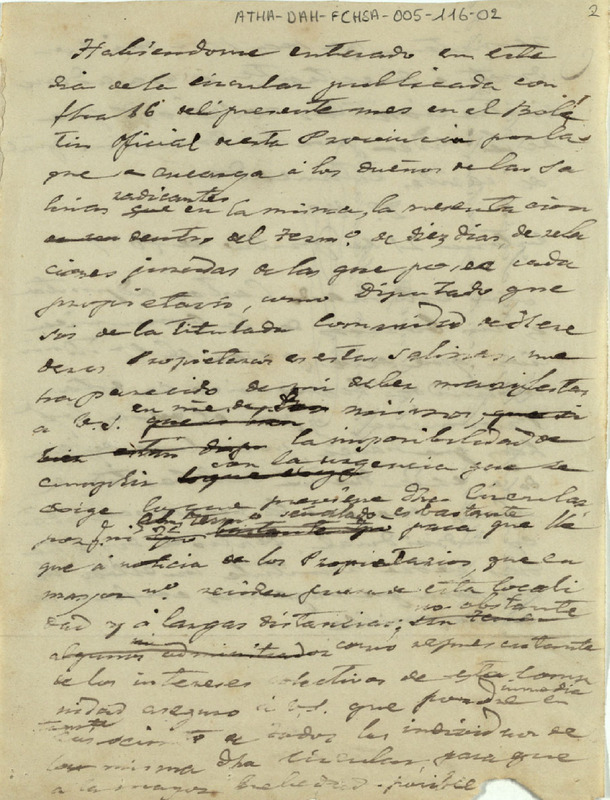 ATHA-DAH-FCHSA-005-116-02
2
Habiendome enterado en este
dia de la circular publicada con
fha 16 del presente mes en el Bole
tin Oficial de esta Provincia por la
que se encarga á los dueños de las Sa
radicantes
linas que en la misma, la presentacion
dentro del term.º de diez dias de rela
ciones juradas de las que posee cada
propietario, como Diputado que
soy de la titulada Comunidad de
deros Propietarios de estas Salinas, me
ha parecido de mi deber manifestar
en n.e de los
á V.S. mismos,
la imposibilidad de
con la urgencia que se
cumplir
exige lo que previene dha circular
señalado es bastante
por q. ni para que lle
gue á noticia de los Propietarios, que en
mayor n.º residen fuera de esta locali
no obstante
dad y á largas distancias;
algunos administradores como representante
de los intereses colectivos de esta Comu
nidad aseguro á V.S. que pondre
inmedia
tamente
á todos los individuos de
la misma dha circular, para que
á la mayor brebedad posible